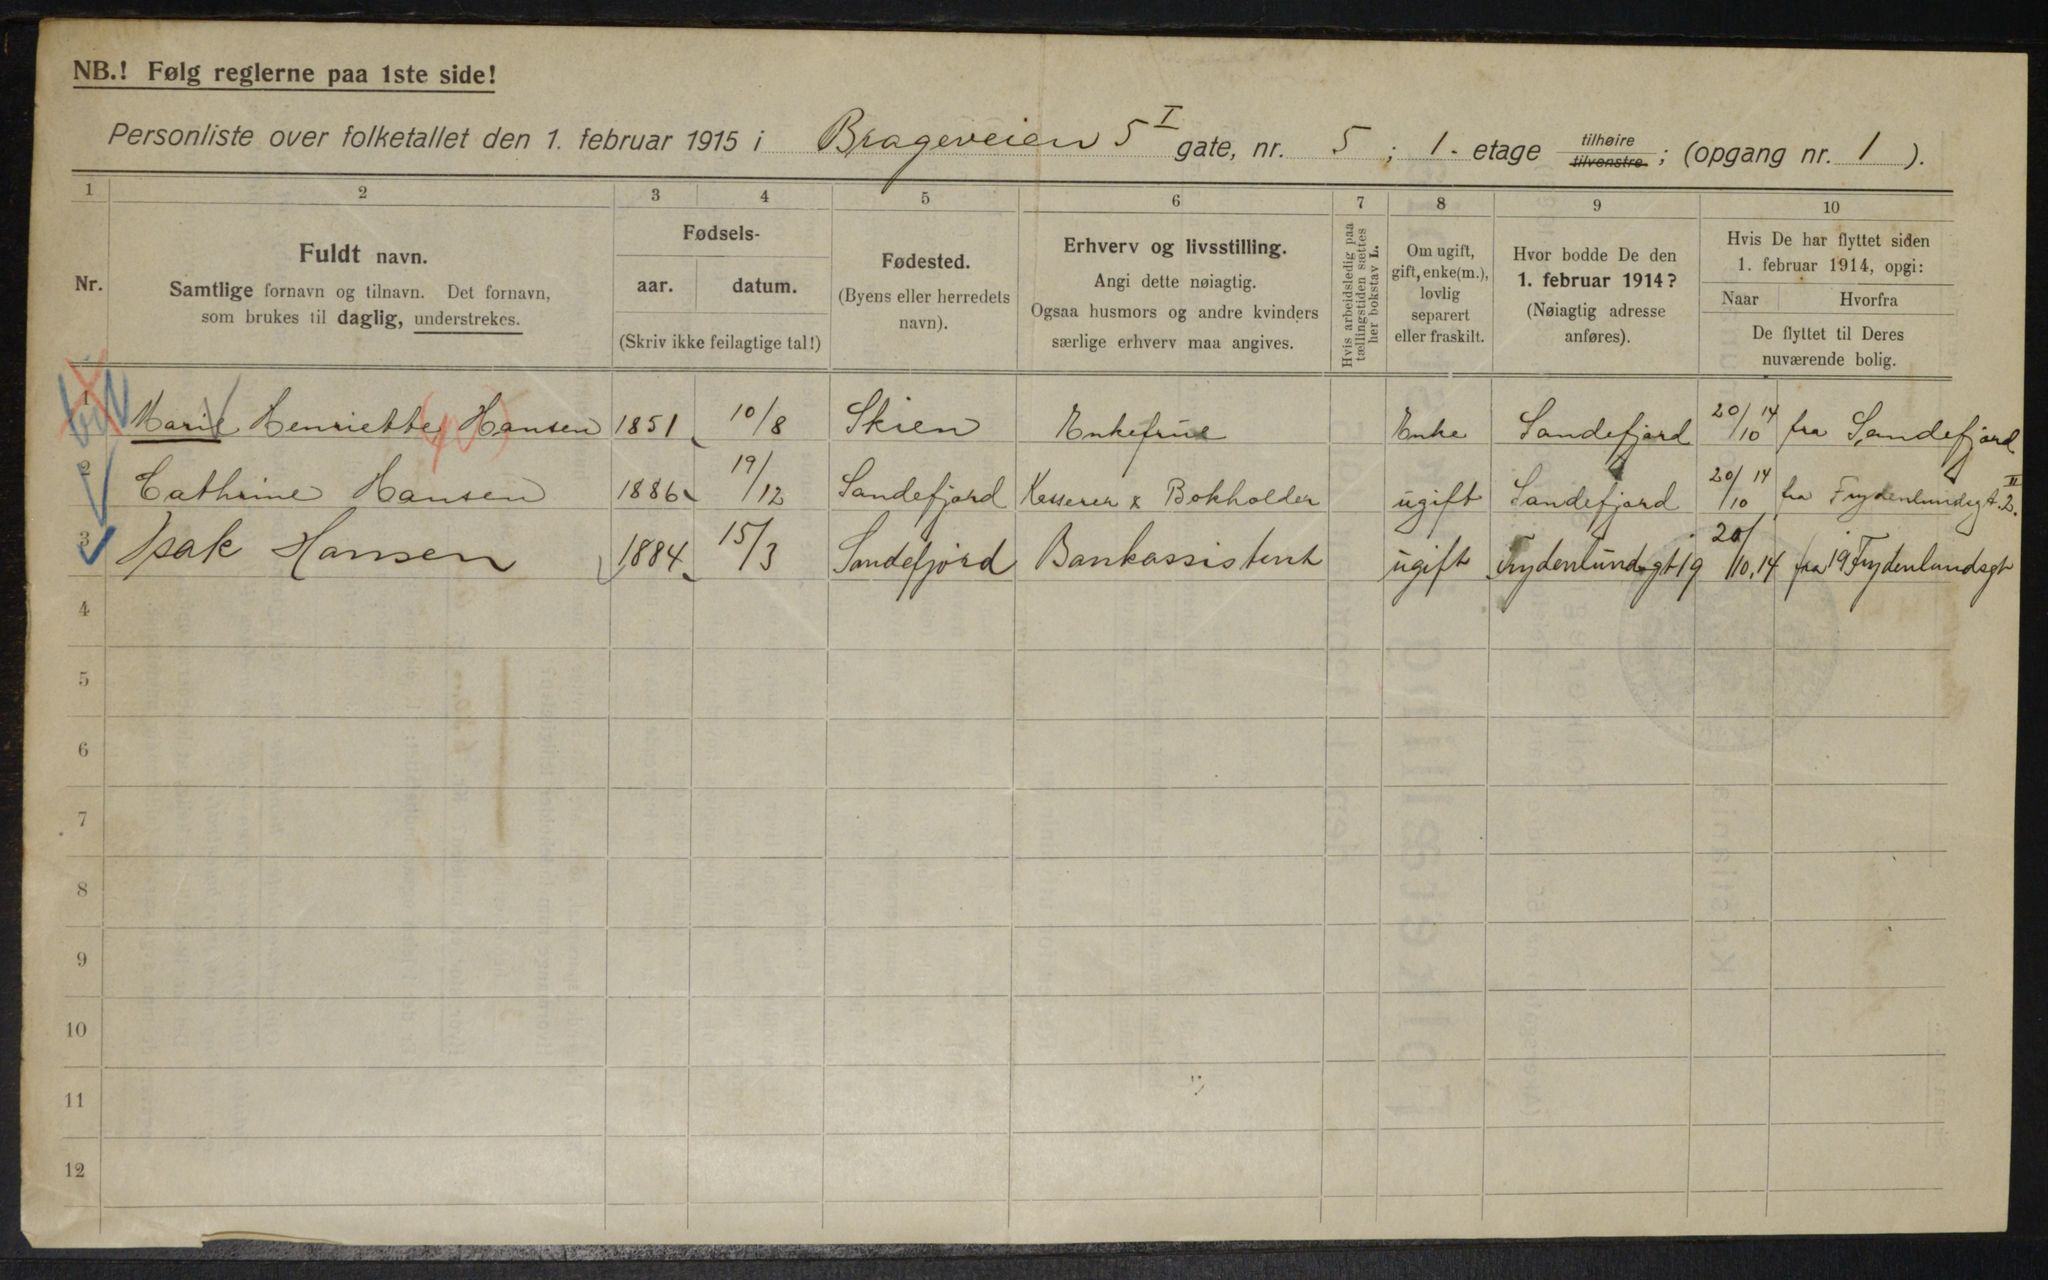 NB.! Følg reglerne paa 1ste side!
Personliste over folketallet den 1. februar 1915 i Brageveien 5 I gate, nr. 5 ; 1. etage tilhøire tilvenstre ; (opgang nr. 1 ).
1 2 3 4 5 6 7 8 9 10
Nr.
Fuldt navn.
Samtlige fornavn og tilnavn. Det fornavn,
som brukes til daglig, understrekes.
Fødsels-
aar. datum.
(Skriv ikke feilagtige tal!)
Fødested.
(Byens eller herredets
navn).
Erhverv og livsstilling.
Angi dette nøiagtig.
Ogsaa husmors og andre kvinders
særlige erhverv maa angives.
Hvis arbeidsledig paa
tællingstiden sættes
her bokstav L.
Om ugift,
gift, enke(m.),
lovlig
separert
eller fraskilt.
Hvor bodde De den
1. februar 1914?
(Nøiagtig adresse
anføres).
Hvis De har flyttet siden
1. februar 1914, opgi:
Naar Hvorfra
De flyttet til Deres
nuværende bolig.
1 Marie Henriette Hansen 1851 10/8 Skien Enkefrue Enke Sandefjord 20/10 14 fra Sandefjord
2 Cathrine Hansen 1886 19/12 Sandefjord Kasserer & Bokholder ugift Sandefjord 20/10 14 fra Frydenlundsgt. 2. II
3 Isak Hansen 1884 15/3 Sandefjord Bankassistent ugift Frydenlundsgt 19 20/10, 14 fra 19 Frydenlundsgt
4
5
6
7
8
9
10
11
12